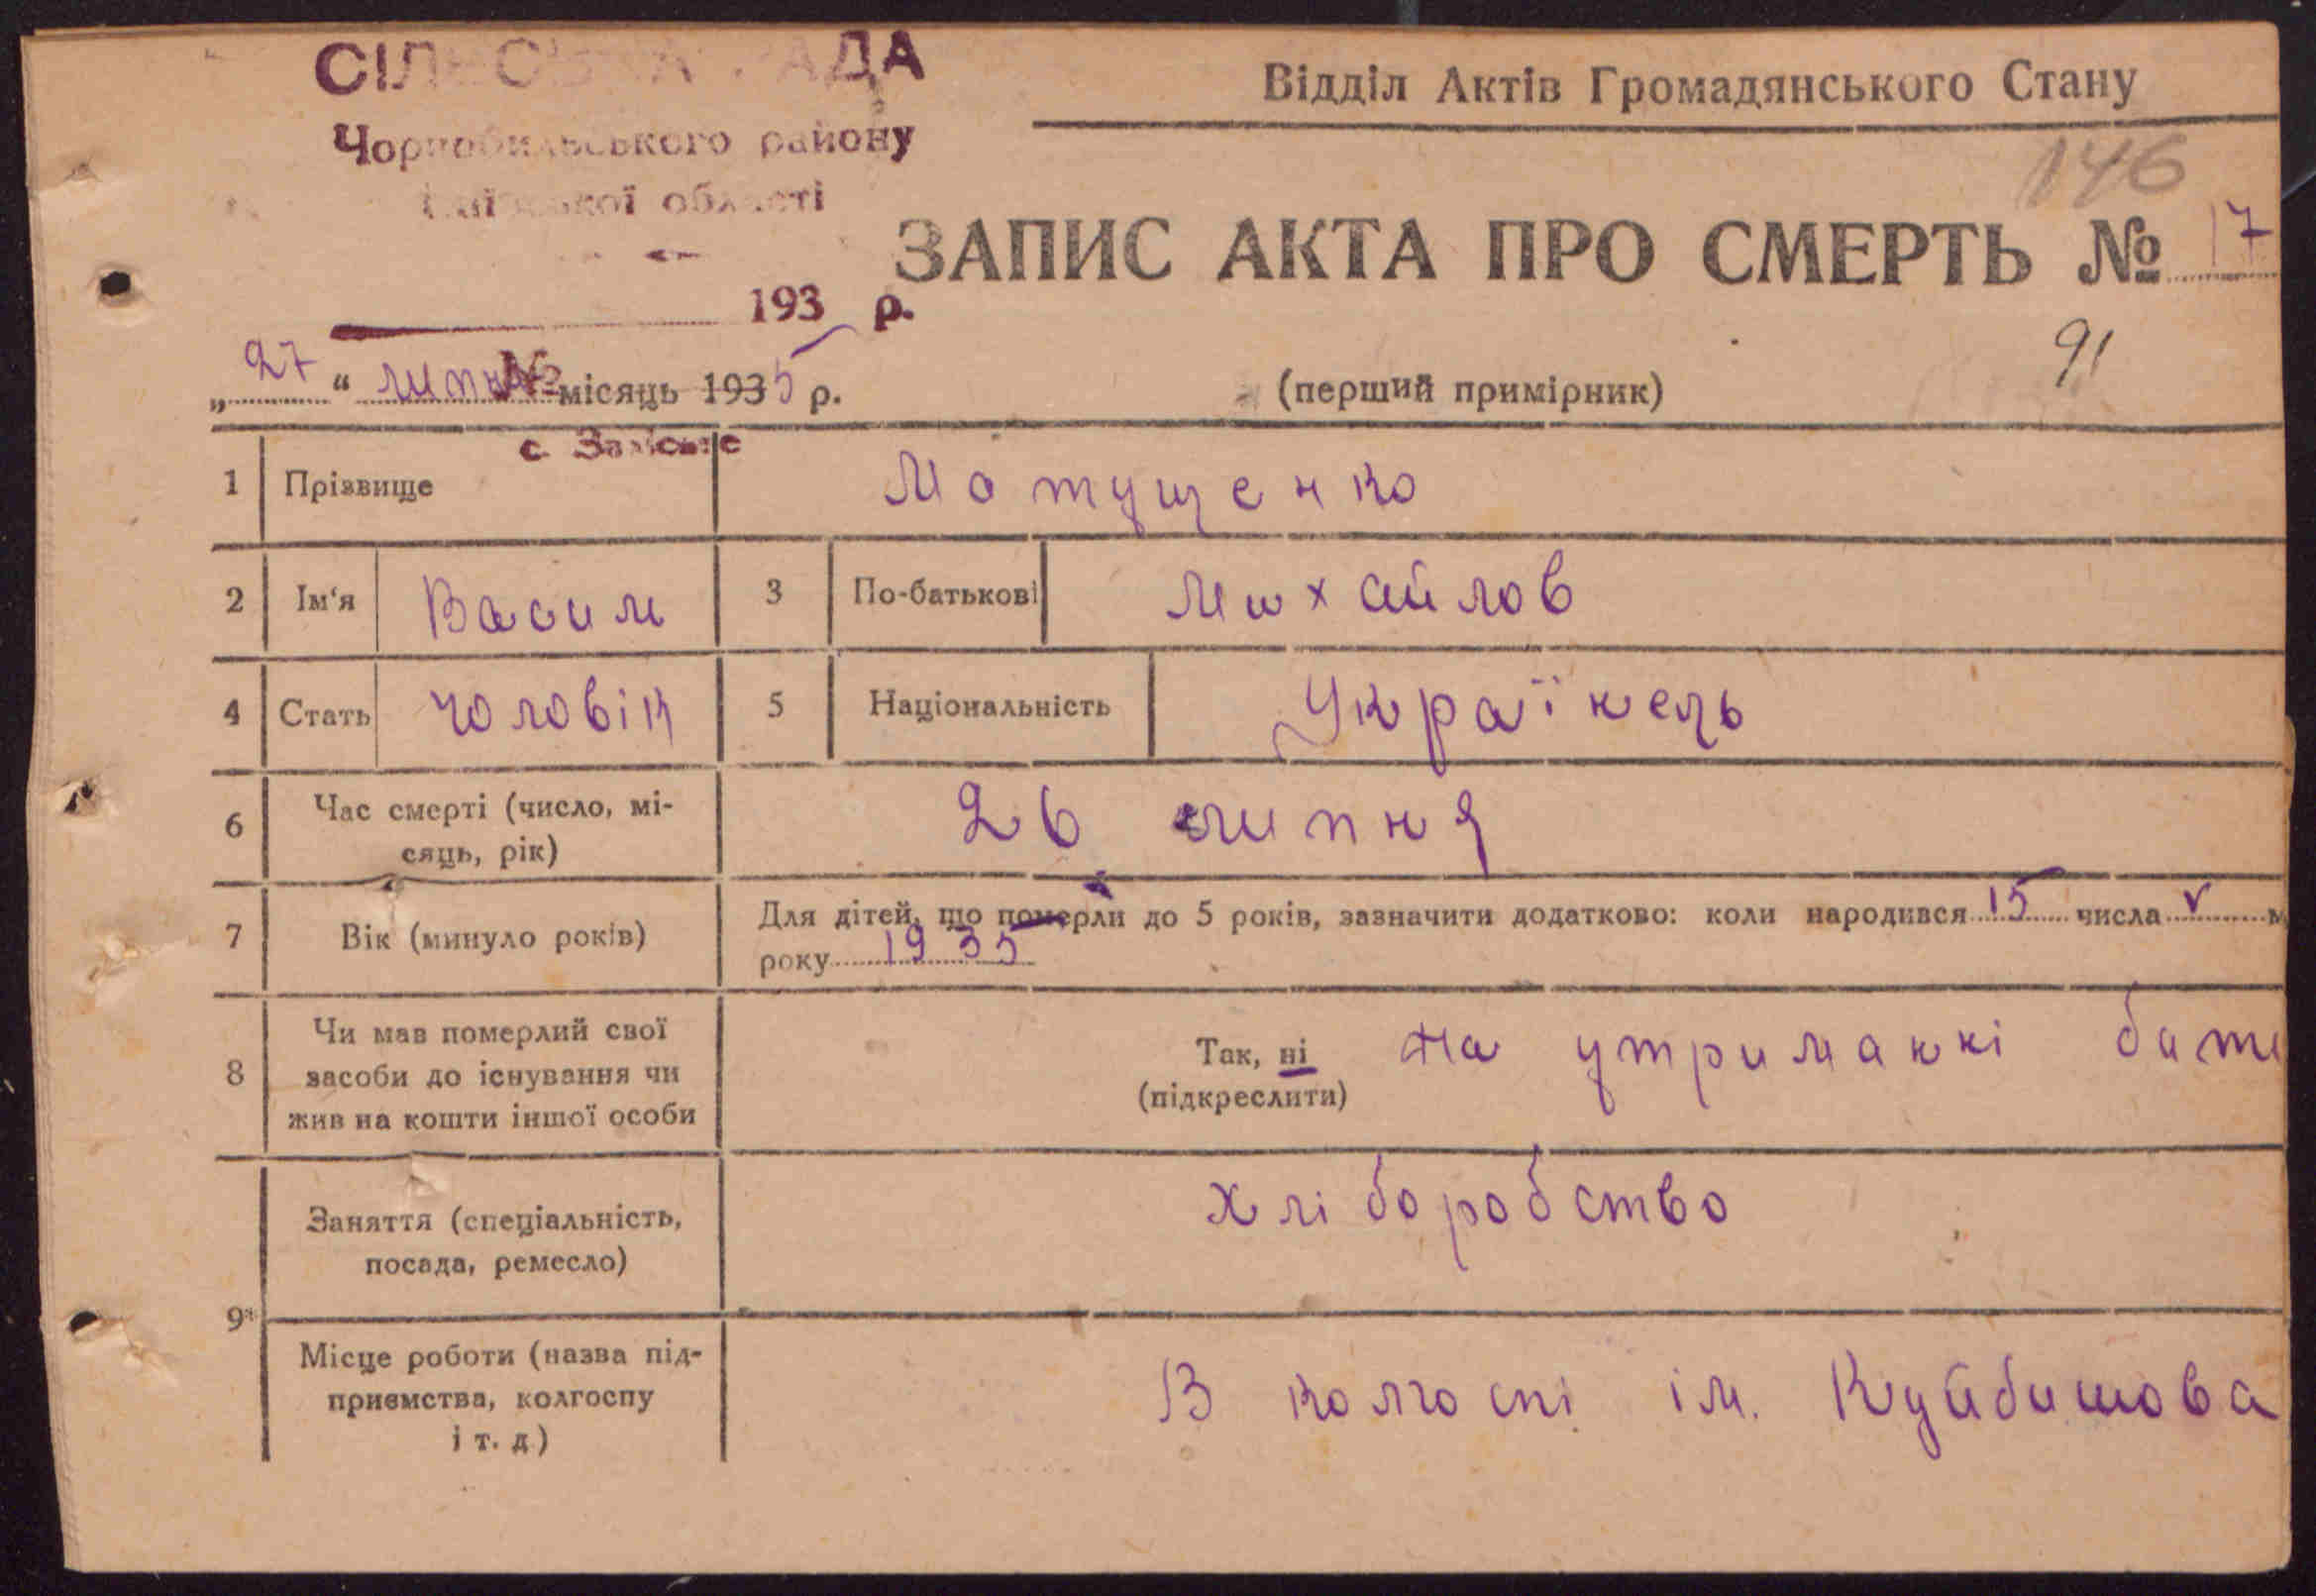 СІЛЬСЬКА РАДА
Чорнобильського району
Київської області
193 р.
№
с. Залісьне
Відділ Актів Громадянського Стану
146
ЗАПИС АКТА ПРО СМЕРТЬ № 17
91
„27“ липня місяць 1935 р.
(перший примірник)
1 Прізвище Матущенко
2 Ім‘я Василь 3 По-батькові Михайлов
4 Стать чоловік 5 Національність Українець
6 Час смерті (число, мі-
сяць, рік) 26 липня
7 Вік (минуло років) Для дітей, що померли до 5 років, зазначити додатково: коли народився 15 числа V м
року 1935
8 Чи мав померлий свої
засоби до існування чи
жив на кошти іншої особи
Так, ні на утриманні бать
(підкреслити)
9* Заняття (спеціальність,
посада, ремесло) хліборобство
Місце роботи (назва під-
приємства, колгоспу
і т. д.) В колгоспі ім. Куйбишова